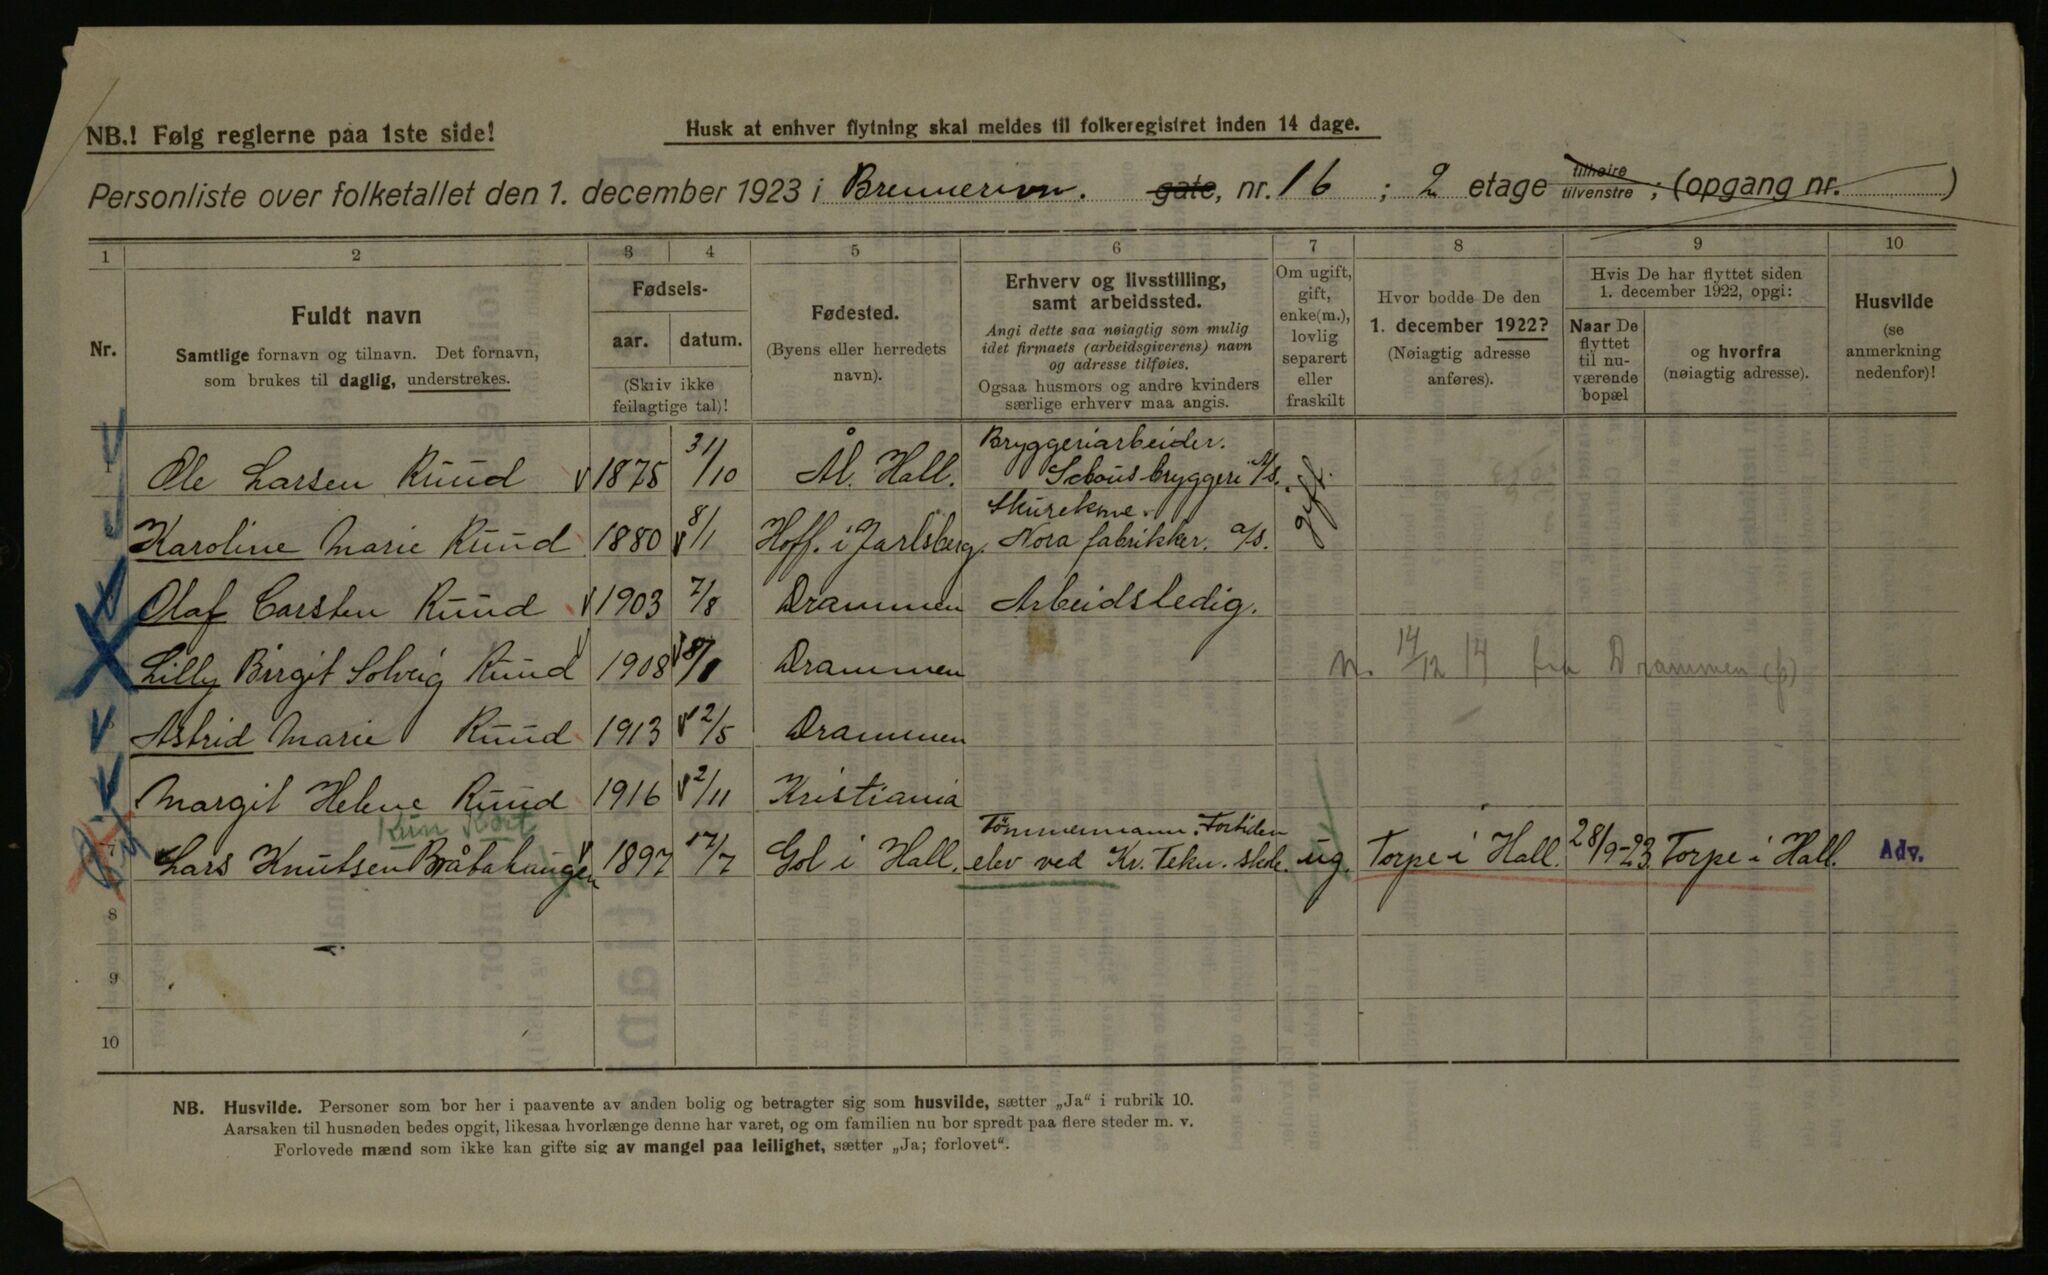 NB.! Følg reglerne paa 1ste side!
Husk at enhver flytning skal meldes til folkeregistret inden 14 dage.
Personliste over folketallet den 1. december 1923 i Brennerivn. gate, nr. 16 ; 2 etage tilhøire tilvenstre ; (opgang nr. )
1 2 3 4 5 6 7 8 9 10
Nr.
Fuldt navn
Samtlige fornavn og tilnavn. Det fornavn,
som brukes til daglig, understrekes.
Fødsels-
aar. datum.
(Skriv ikke
feilagtige tal)!
Fødested.
(Byens eller herredets
navn).
Erhverv og livsstilling,
samt arbeidssted.
Angi dette saa nøiagtig som mulig
idet firmaets (arbeidsgiverens) navn
og adresse tilføies.
Ogsaa husmors og andre kvinders
særlige erhverv maa angis.
Om ugift,
gift,
enke(m.),
lovlig
separert
eller
fraskilt
Hvor bodde De den
1. december 1922?
(Nøiagtig adresse
anføres).
Hvis De har flyttet siden
1. december 1922, opgi:
Naar De
flyttet
til nu-
værende
bopæl
og hvorfra
(nøiagtig adresse).
Husvilde
(se
anmerkning
nedenfor)!
Ole Larsen Ruud 1875 31/10 Ål. Hall. Bryggeriarbeider. Schous bryggeri A/S. gift
Karoline Marie Ruud 1880 8/1 Hoff. i Jarlsberg. Skurekone. Nora fabrikker. a/s.
Olaf Carsten Ruud 1903 7/8 Drammen Arbeidsledig.
Lilly Birgit Solveig Ruud 1908 Drammen 14/12 14 fra Drammen
Astrid Marie Ruud 1913 2/5 Drammen
Margit Helene Ruud 1916 2/11 Kristiania
Kun Kort
7 Lars Knutsen Bråtahaugen 1897 17/7 Gol i Hall. Tømmermann. Fortiden elev ved Kr. Tekn. skole. ug. Torpe i Hall. 28/9-23. Torpe i Hall. Adv.
8
9
10
NB. Husvilde. Personer som bor her i paavente av anden bolig og betragter sig som husvilde, sætter „Ja“ i rubrik 10.
Aarsaken til husnøden bedes opgit, likesaa hvorlænge denne har varet, og om familien nu bor spredt paa flere steder m. v.
Forlovede mænd som ikke kan gifte sig av mangel paa leilighet, sætter „Ja; forlovet“.